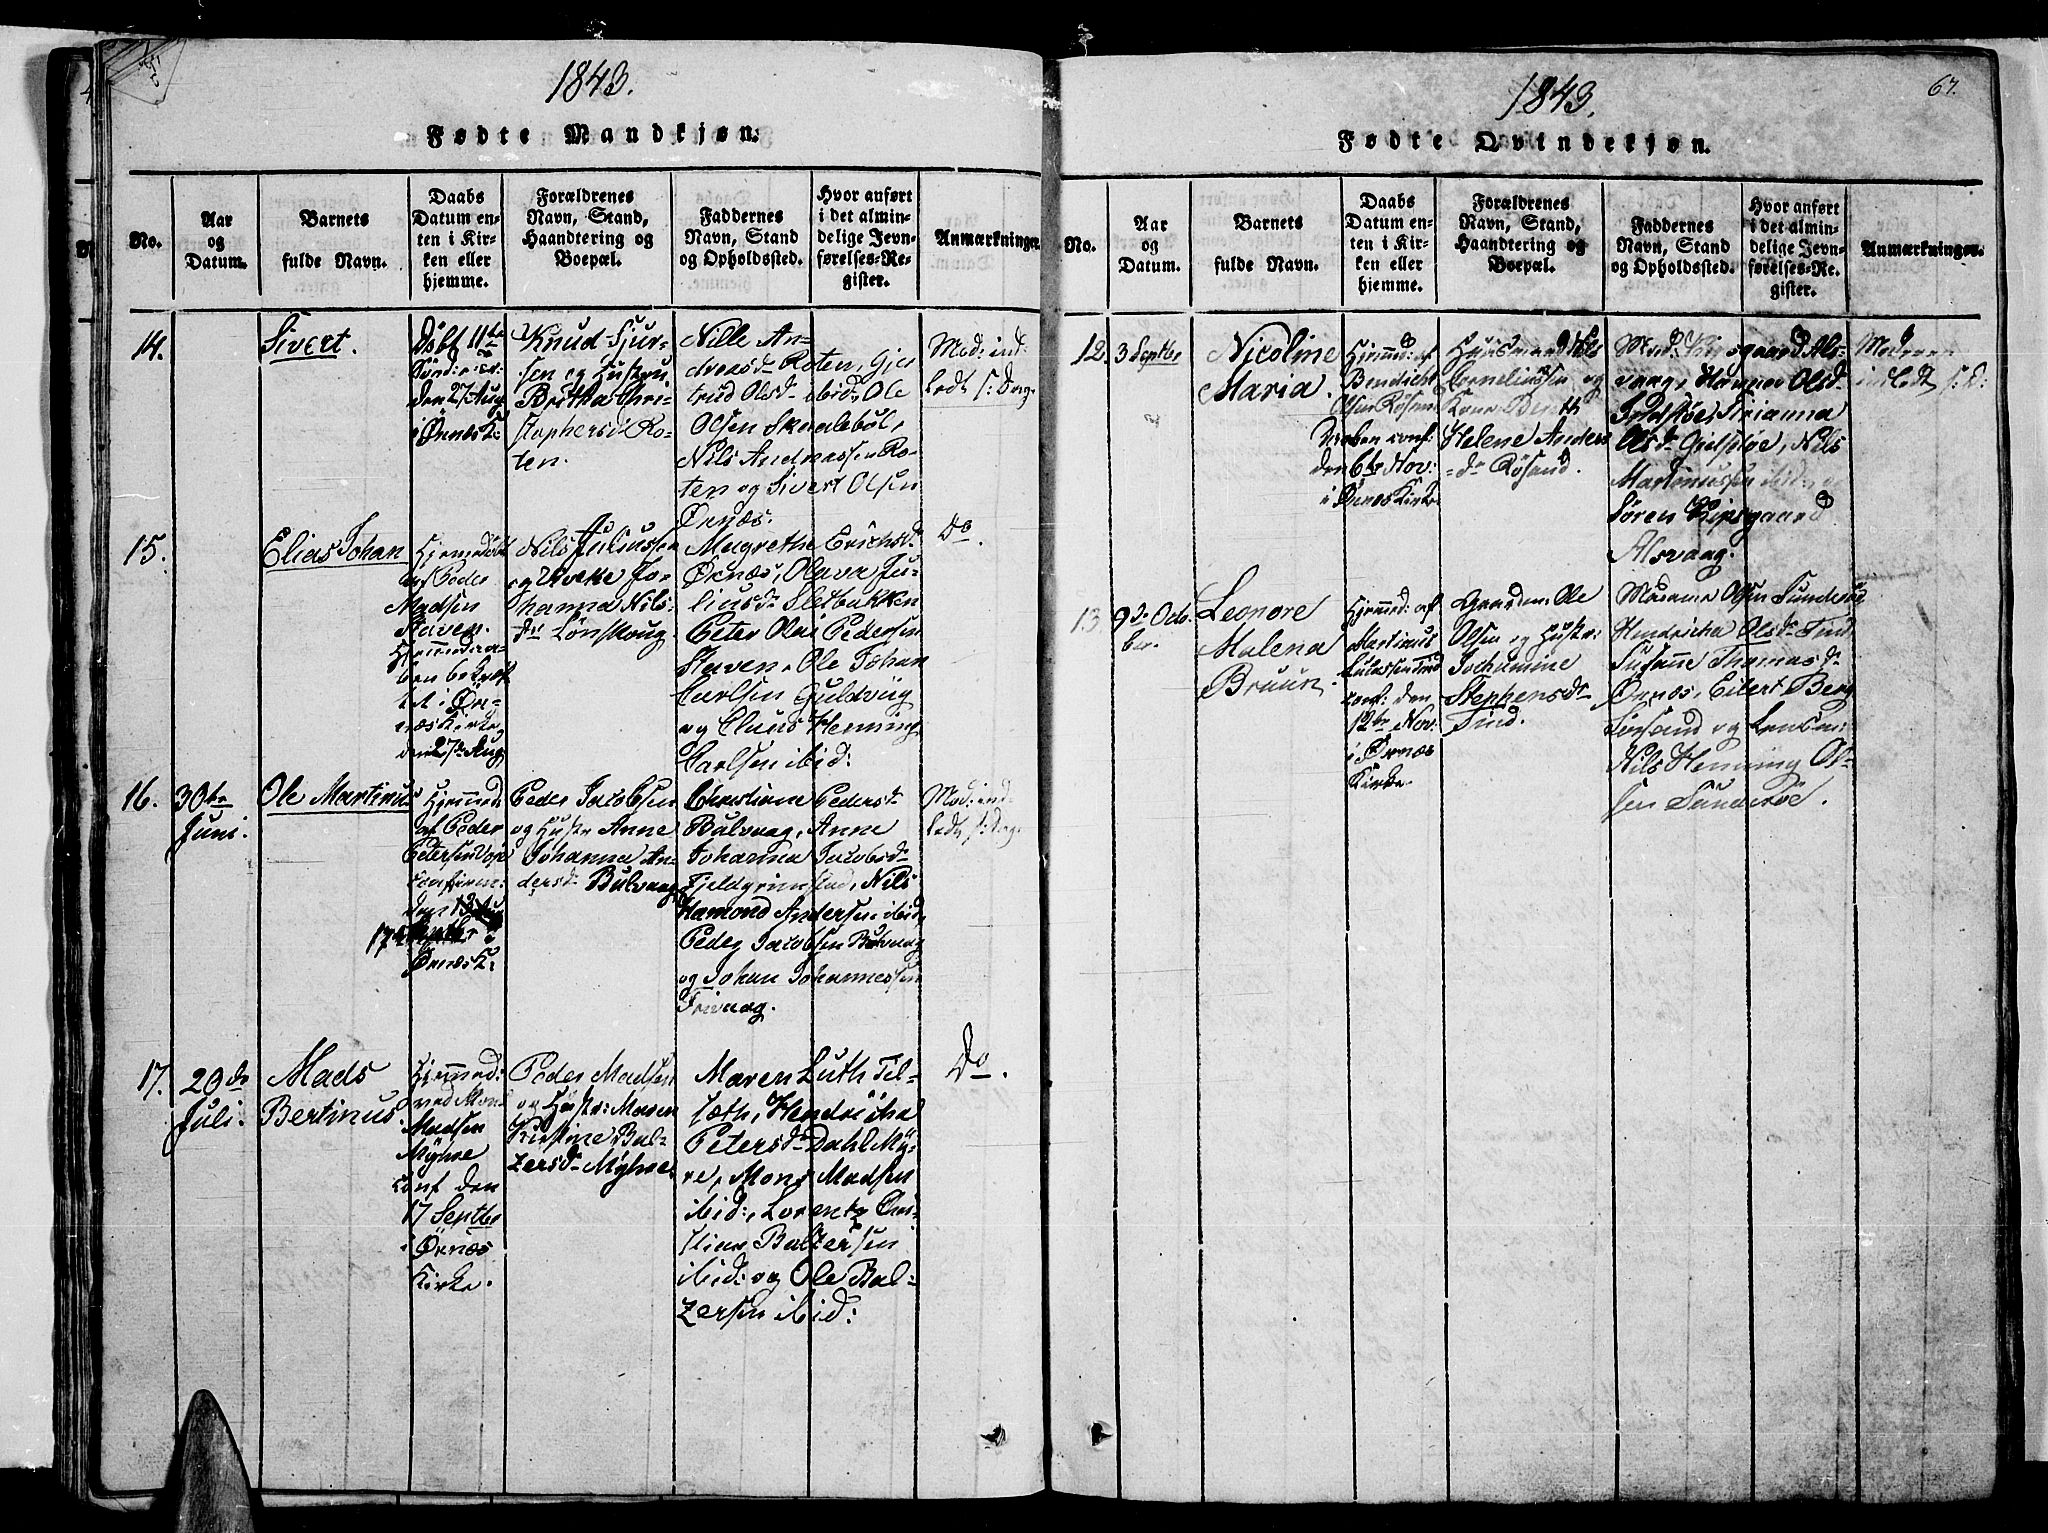 1843.
Fødte Mandkjøn.
No.
Aar
og
Datum.
Barnets
fulde Navn.
Daabs
Datum en-
ten i Kir-
ken eller
hjemme.
Forældrenes
Navn, Stand,
Haandtering og
Boepæl.
Faddernes
Navn, Stand
og Opholdssted.
Hvor anført
i det almin-
delige Jevn-
førelses-Re-
gister.
Anmærkninger.
14.
Sivert.
Döbt 11te
den 27 Aug
i Ørnæs K:
Knud Sjur-
sen og Hustru
Britha Chri-
stophersd Ro-
ten.
Nille An-
dreasd Roten, Gjer
trud Olsd ibid, Ole
Olsen Skaaleböl,
Nils Andreassen Ro-
ten og Sivert Olsen
Ørnæs.
Mod: ind-
ledt s: Dag.
15.
Elias Johan
Hjemmedöbt
af Peder
Madsen
Staven.
Hjemmedaa-
ben bekræft
et i Ør-
næs Kirke
den 27de Aug
Nils Juliussen
og Jo-
hanna Nils-
dr Lönskoug.
Magrethe Erichsd
Ørnæs, Olava Ju-
liusd Sletbakken
Peter Olai Pedersen
Staven, Ole Johan
Carlsen Guldviig
og Claus Henning
Carlsen ibid:
Do.
16.
30te
Juni.
Ole Martinus
Hjemmed:
af Peder
Petersen
confirm:
den
17
Ørnæs K:
Peder Jacobsen
og Hustr Anne
Johanna An-
dersd Bulvaag
Christiane Pedersd
Bulvaag, Anne
Johanna Jacobsd
Fjeldgrimstad, Nils
Hamond Andersen ibid
Peder Jacobsen Bulvaag
og Johan Johannessen
Frivaag.
Mod: ind-
ledt s: Dag.
17.
20de
Juli.
Mads
Bertinus.
Hjemmed:
ved Mons
Madsen
Myhre
conf den
17 Septbr
i Ørnæs
Kirke.
Peder Madsen
og Hustr: Maren
Kirstine Bal-
zersd Myhre.
Maren Luth Til-
sæth, Hendricha
Petersd Dahl My-
re, Mons Madsen
ibid:, Lorentz Chri-
stian Baltzersen
ibid: og Ole Bal-
zersen ibid:
Do.
1843.
67.
Fødte Qvindekjøn.
No.
Aar
og
Datum.
Barnets
fulde Navn.
Daabs
Datum en-
ten i Kir-
ken eller
hjemme.
Forældrenes
Navn, Stand,
Haandtering og
Boepæl.
Faddernes
Navn, Stand
og Opholdssted.
Hvor anført
i det almin-
delige Jevn-
førelses-Re-
gister.
Anmærkninger.
12.
3 Septbr
Nicoline
Maria.
Hjemmed: af
Bendicht
Olsen Røsand
Daaben conf:
den 6te Nov:
i Ørnæs Kirke
Huusmand Nils
Corneliussen og
Kone Bereth
Helene Anders
-dr Røsand.
Mad: Kipsgaard Als-
vaag, Hanna Olsd
Gidsköe, Arianna
Olsd Gidsköe, Nils
Martinussen ibid: og
Sören Kipsgaard
Alsvaag.
Moderen
indledt s: D:
13
9de Octo-
ber.
Leonore
Malena
Bruun.
Hjemmed: af
Martinus
Lucassen Tind
conf: den
12te Nov:
i Ørnæs
Kirke.
Gaardm: Ole
Olsen og Hustr:
Jochumine
Stephensdr
Tind.
Madame Olsen Sundsröe
Hendricha Olsdr Tind
Susanne Thomasdr
Ørnæs, Eilert Berg
og Lensm:
Nils Henning Ol-
sen Sunderöe.